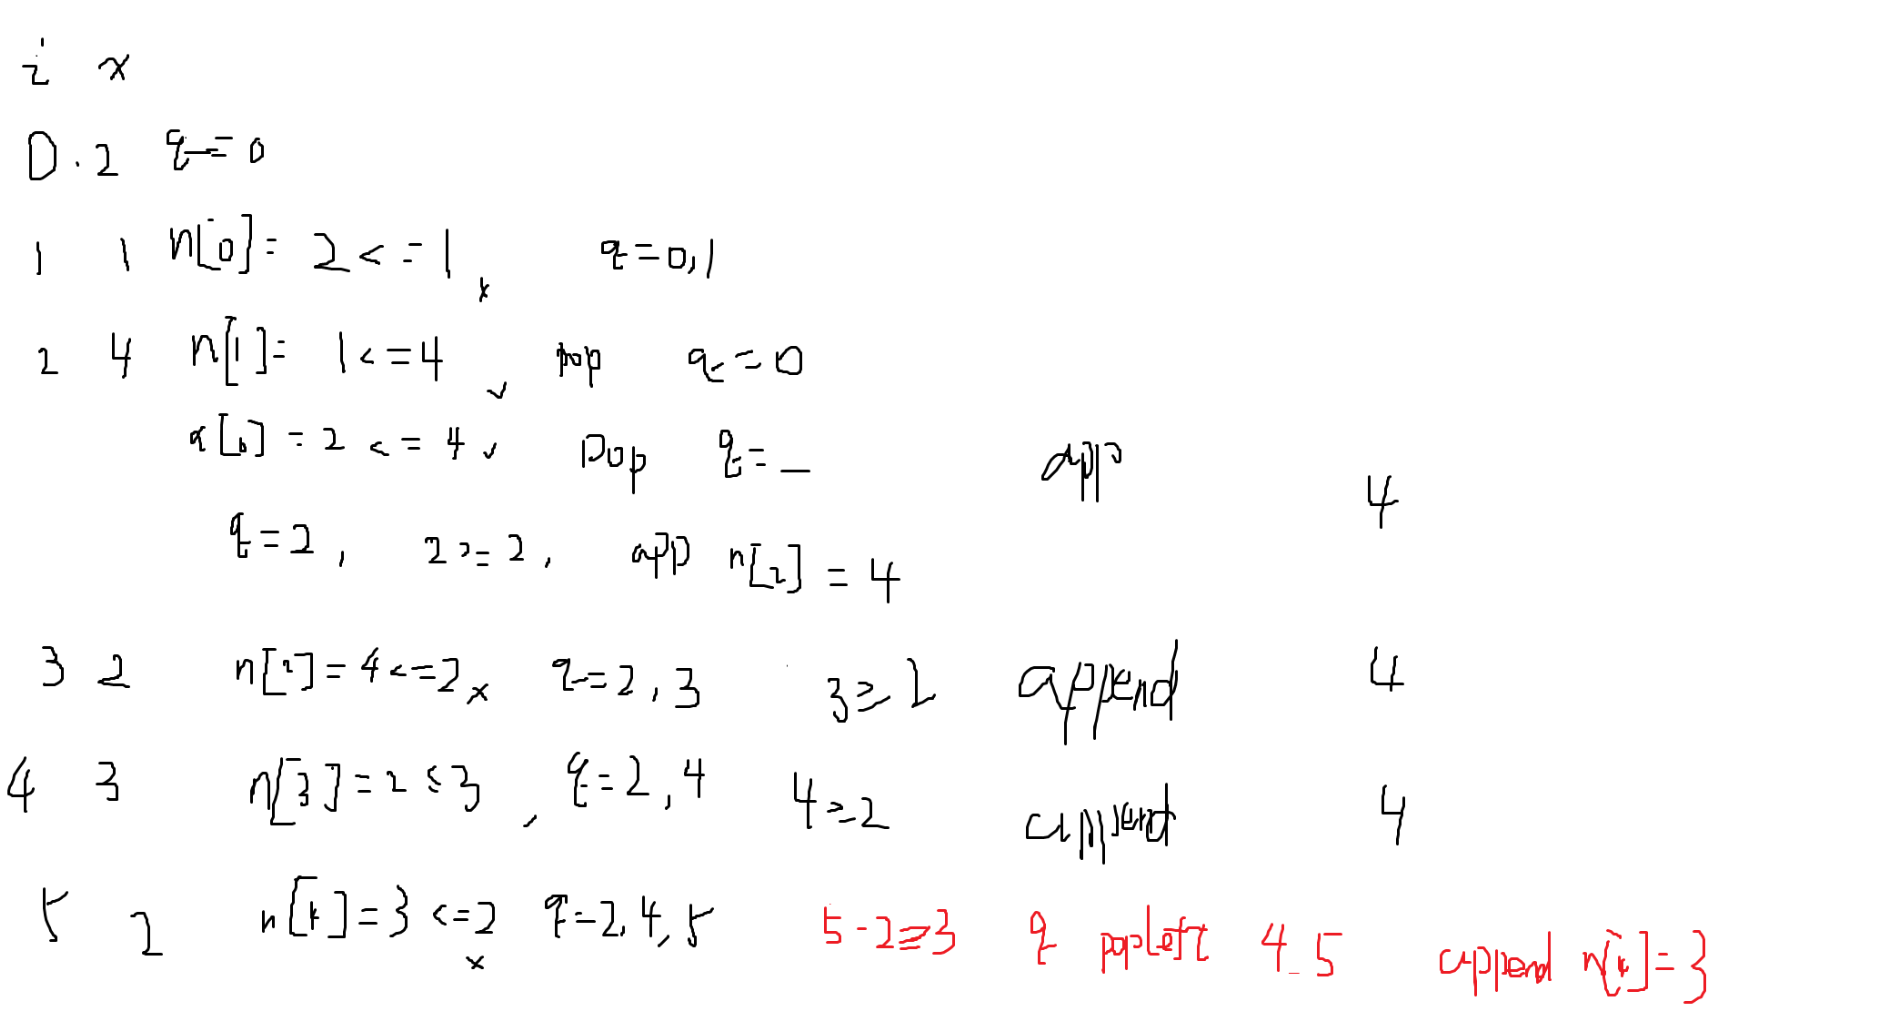 i x
0 . 2 q = 0
1 1 n[0] = 2 <= 1 x q = 0,1
2 4 n[1] = 1 <= 4 ✓ pop q = 0
n[0] = 2 <= 4 ✓ pop q = _ app 4
q = 2 , 2 >= 2 , app n[2] = 4
3 2 n[2] = 4 <= 2 x q = 2 , 3 3 ≥ 2 append 4
4 3 n[3] = 2 ≤ 3 , q = 2 , 4 4 >= 2 append 4
5 2 n[4] = 3 <= 2 x q = 2, 4, 5 5 - 2 ≥ 3 q popleft 4 _ 5 append n[4] = 3